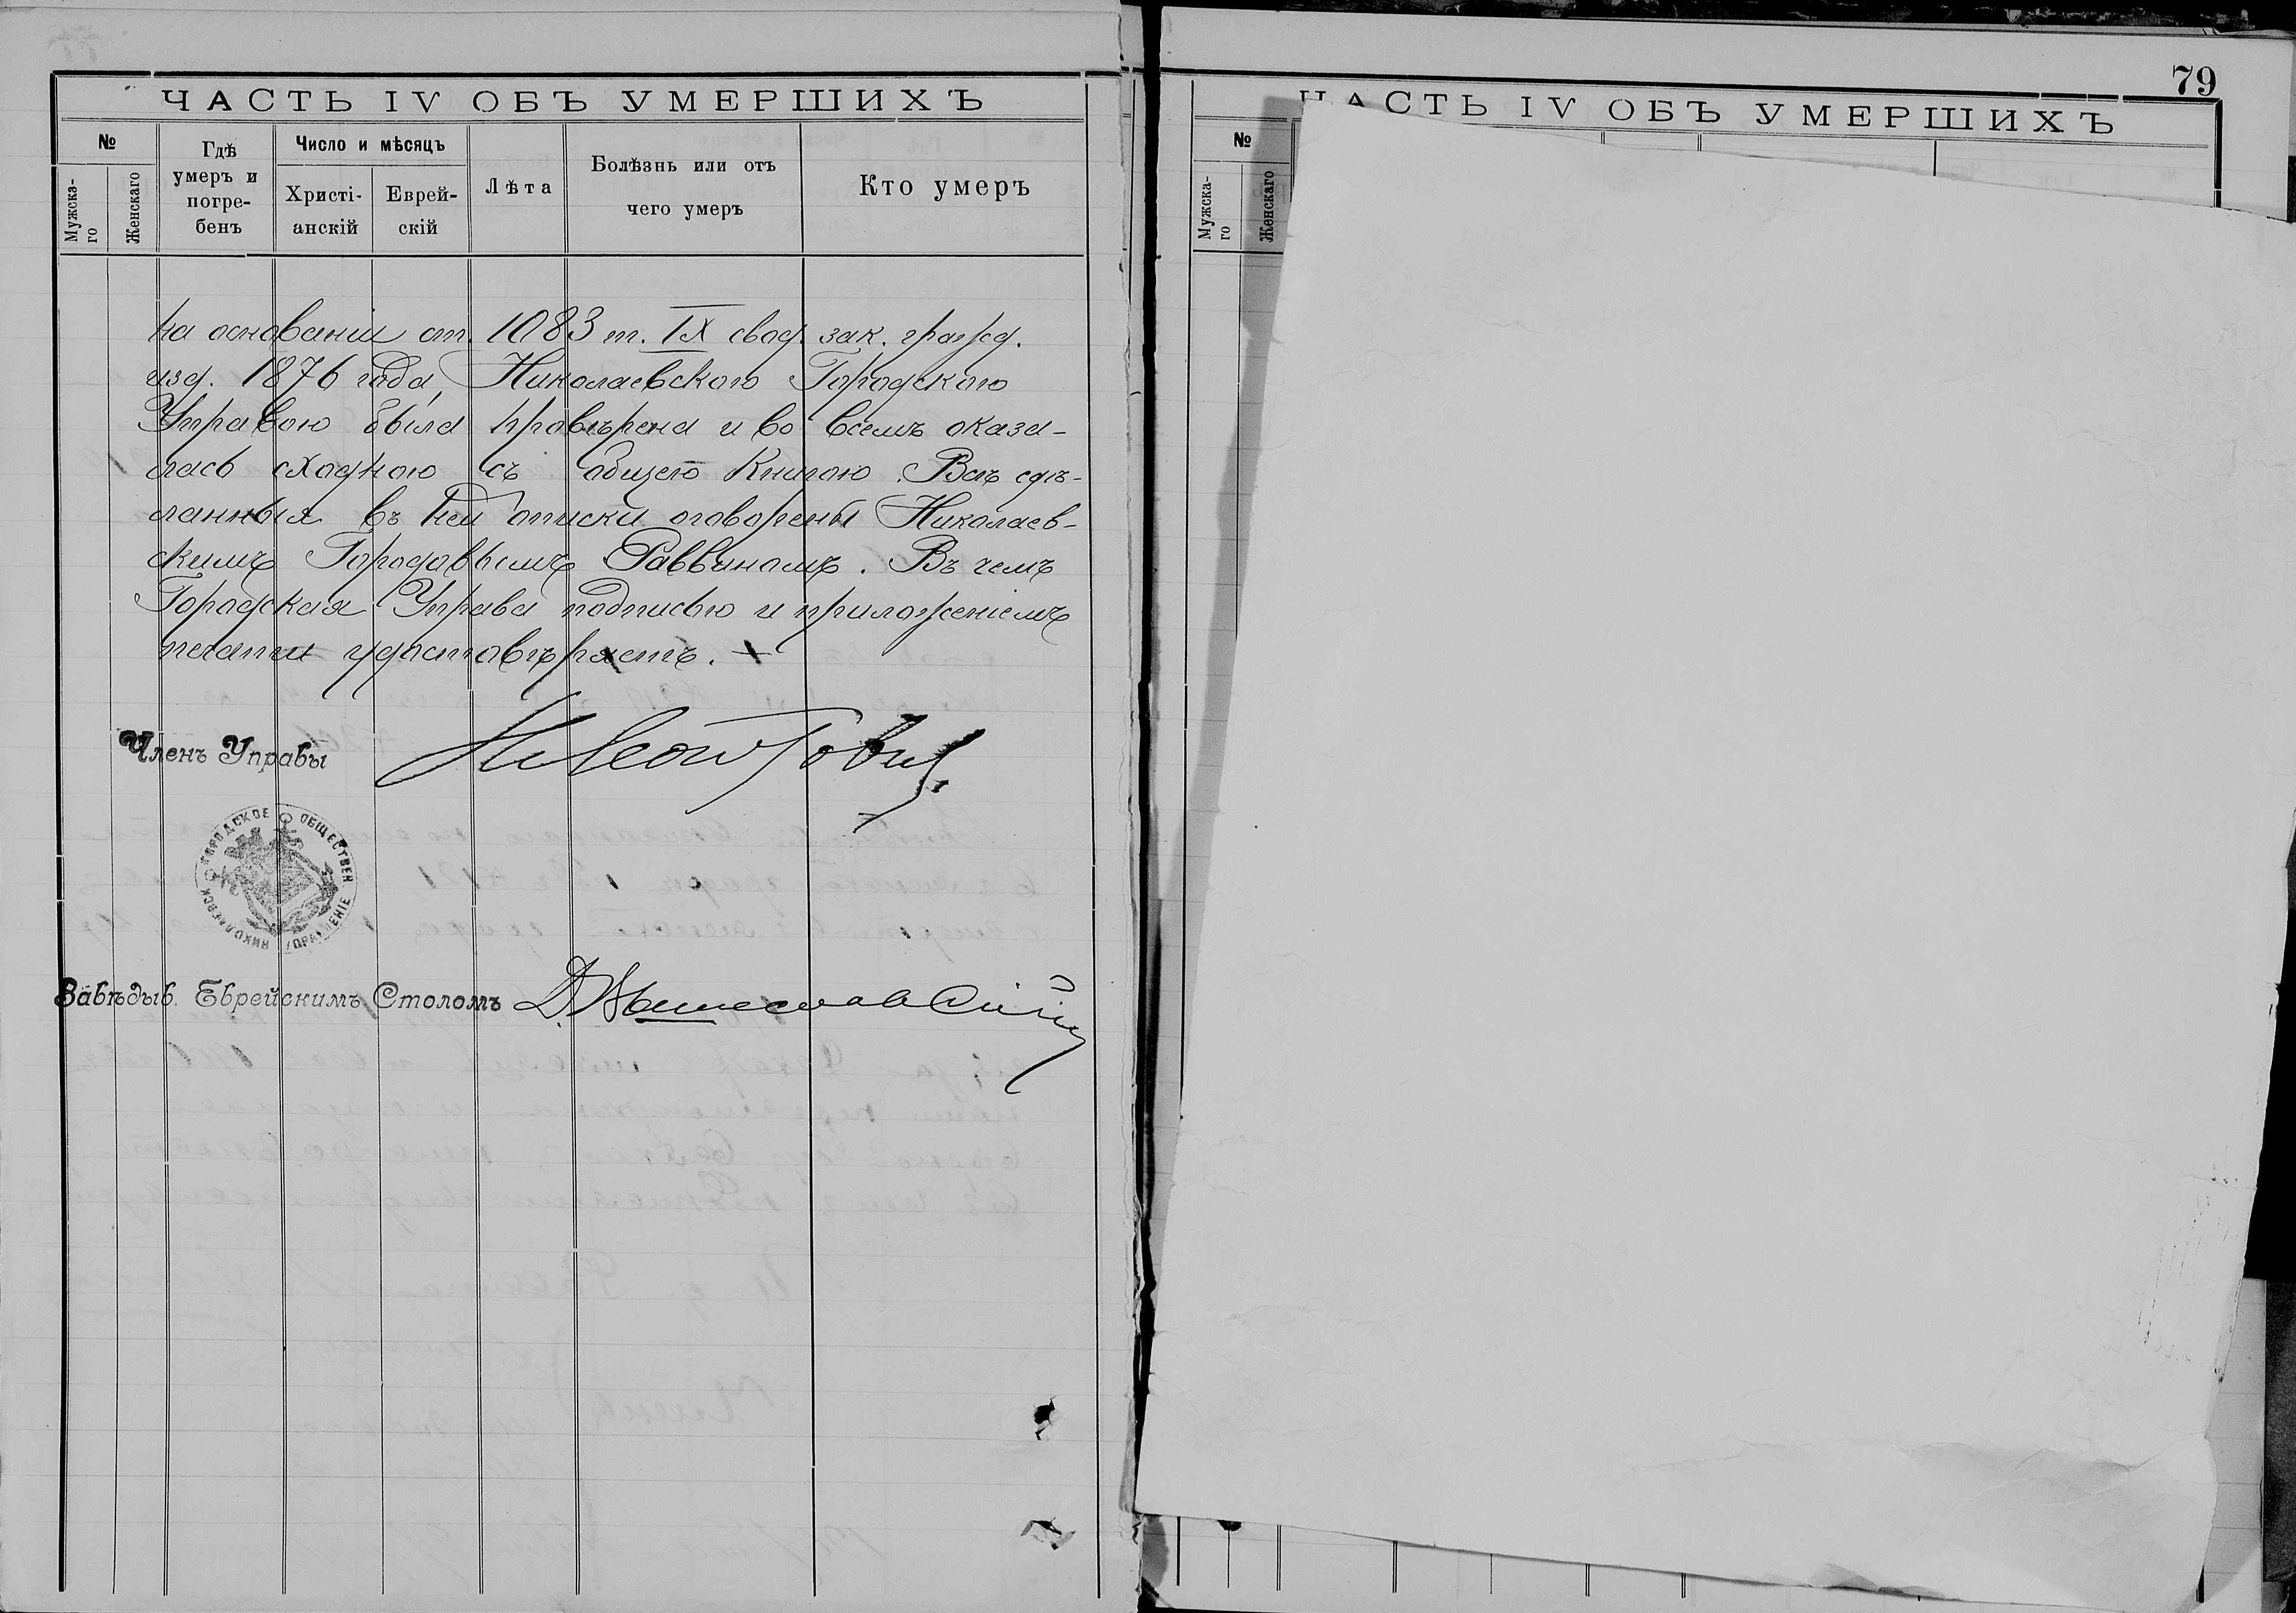 ЧАСТЬ IV ОБЪ УМЕРШИХЪ
№
Мужска-
го
Женскаго
Гдѣ
умеръ и
погре-
бенъ
Число и мѣсяцъ
Христі-
анскій
Еврей-
скій
Лѣта
Болѣзнь или отъ
чего умеръ
Кто умеръ
На основаніи ст. 1083 т. IX свод. зак. гражд.
изд. 1876 года, Николаевскою Городскою
Управою была провѣрена и во всемъ оказа-
лась сходною съ общею Книгою. Всѣ сдѣ-
ланныя въ ней описки оговорены Николаев-
скимъ Городовымъ Раввиномъ. Въ чемъ
Городская Управа подписью и приложеніемъ
печати удостовѣряетъ.
Членъ Управы
НИКОЛАЕВСК. ГОРОДСКОЕ ОБЩЕСТВЕН. УПРАВЛЕНІЕ
Завѣдыв. Еврейскимъ Столомъ
79
ЧАСТЬ IV ОБЪ УМЕРШИХЪ
№
Мужска-
го
Женскаго